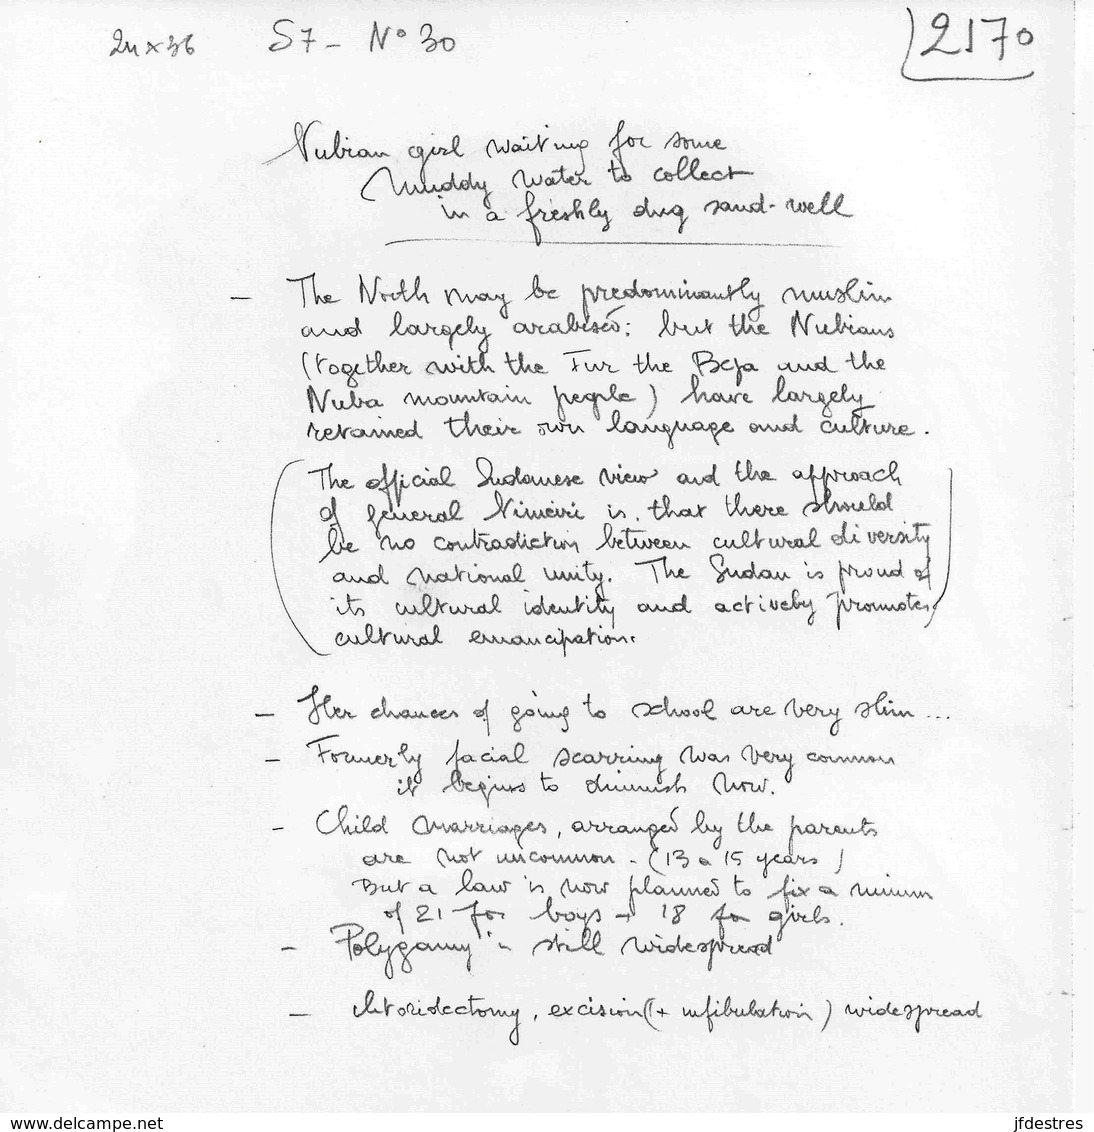 24 x 36 S7 - N° 30 2170
Nubian girl waiting for some
muddy water to collect
in a freshly dug sand-well
- The North may be predominantly muslim
and largely arabised; but the Nubians
(together with the Fur the Beja and the
Nuba mountain people) have largely
retained their own language and culture.
(The official Sudanese view and the approach
of general Nimeiri is, that there should
be no contradiction between cultural diversity
and national unity. The Sudan is proud of
its cultural identity and actively promotes
cultural emancipation.)
- Her chances of going to school are very slim ...
- Formerly facial scarring was very common
it begins to diminish now.
- Child marriages, arranged by the parents
are not uncommon - (13 a 15 years)
But a law is now planned to fix a
of 21 for boys + 18 for girls.
- Polygamy is still widespread
- clitoridectomy, excision (+ infibulation) widespread
www.delcampe.net jfdestres